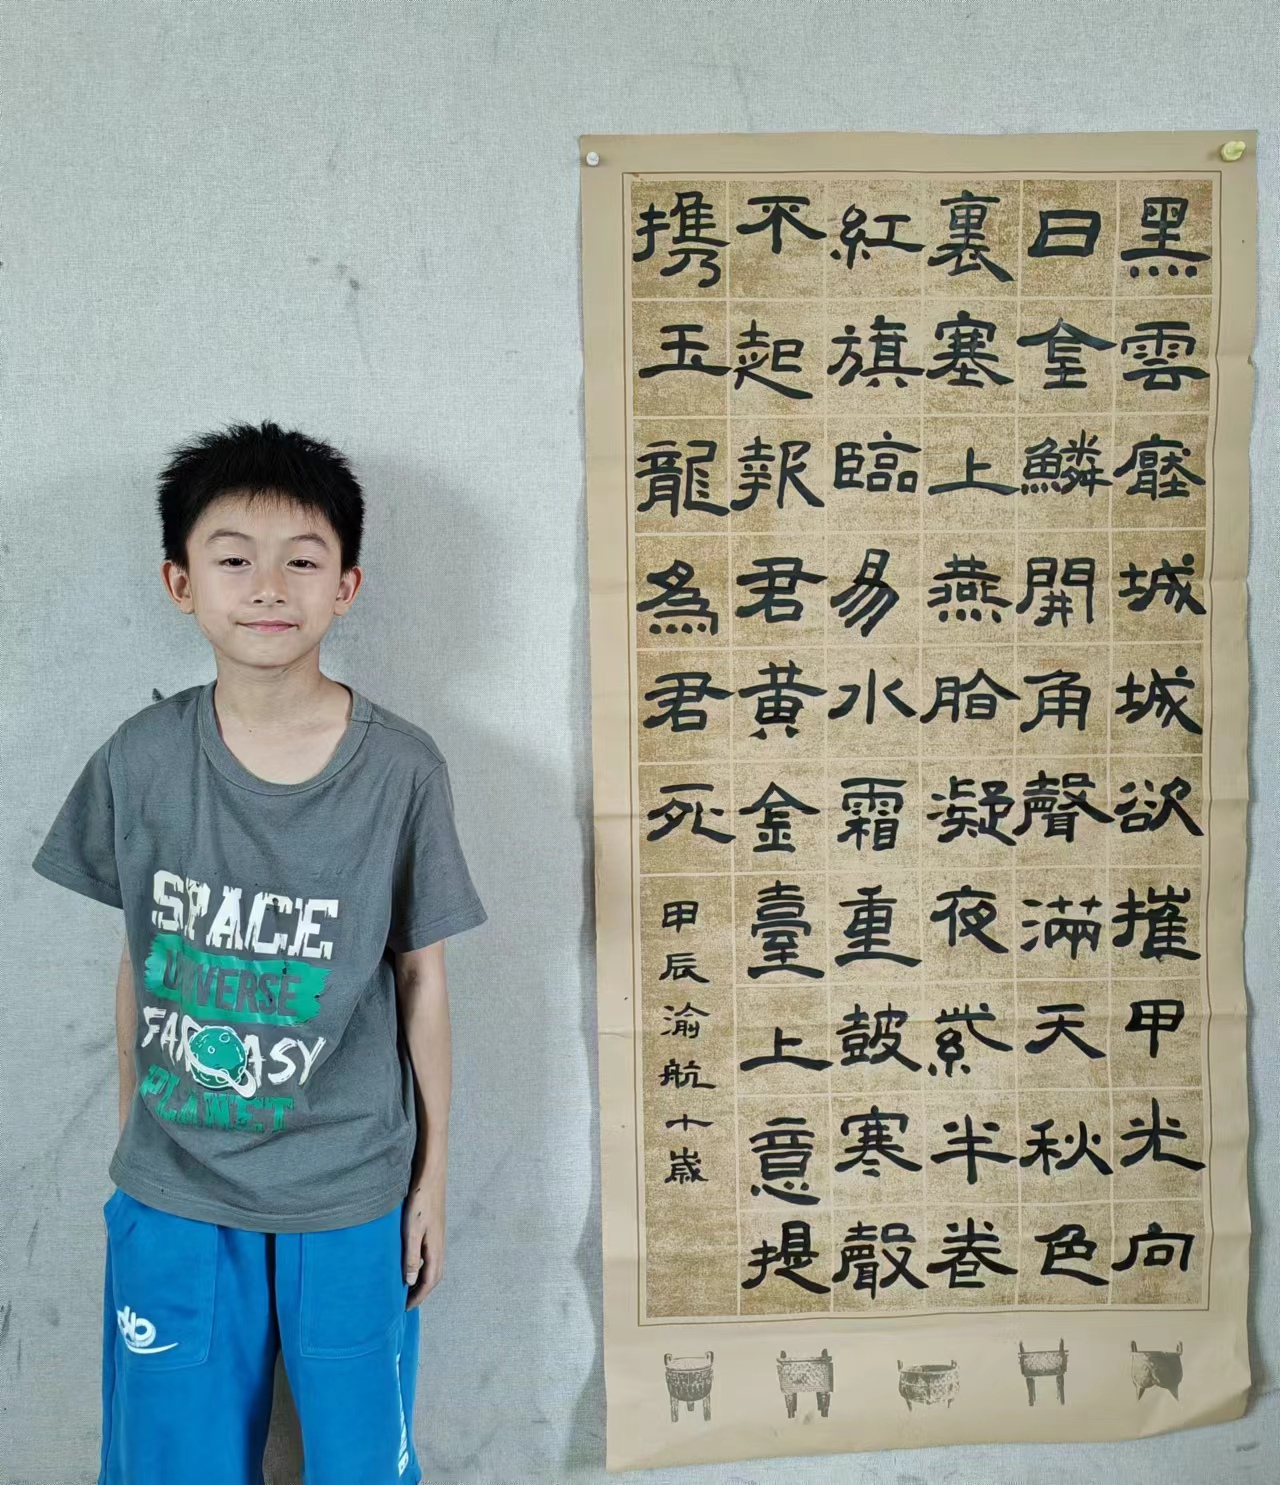 黑雲壓城城欲摧甲光向
日金鱗開角聲滿天秋色
裏塞上燕脂凝夜紫半卷
紅旗臨易水霜重皷寒聲
不起報君黄金臺上意提
携玉龍為君死
甲辰渝航十歲
SPACE
UNIVERSE
FANTASY
PLANET